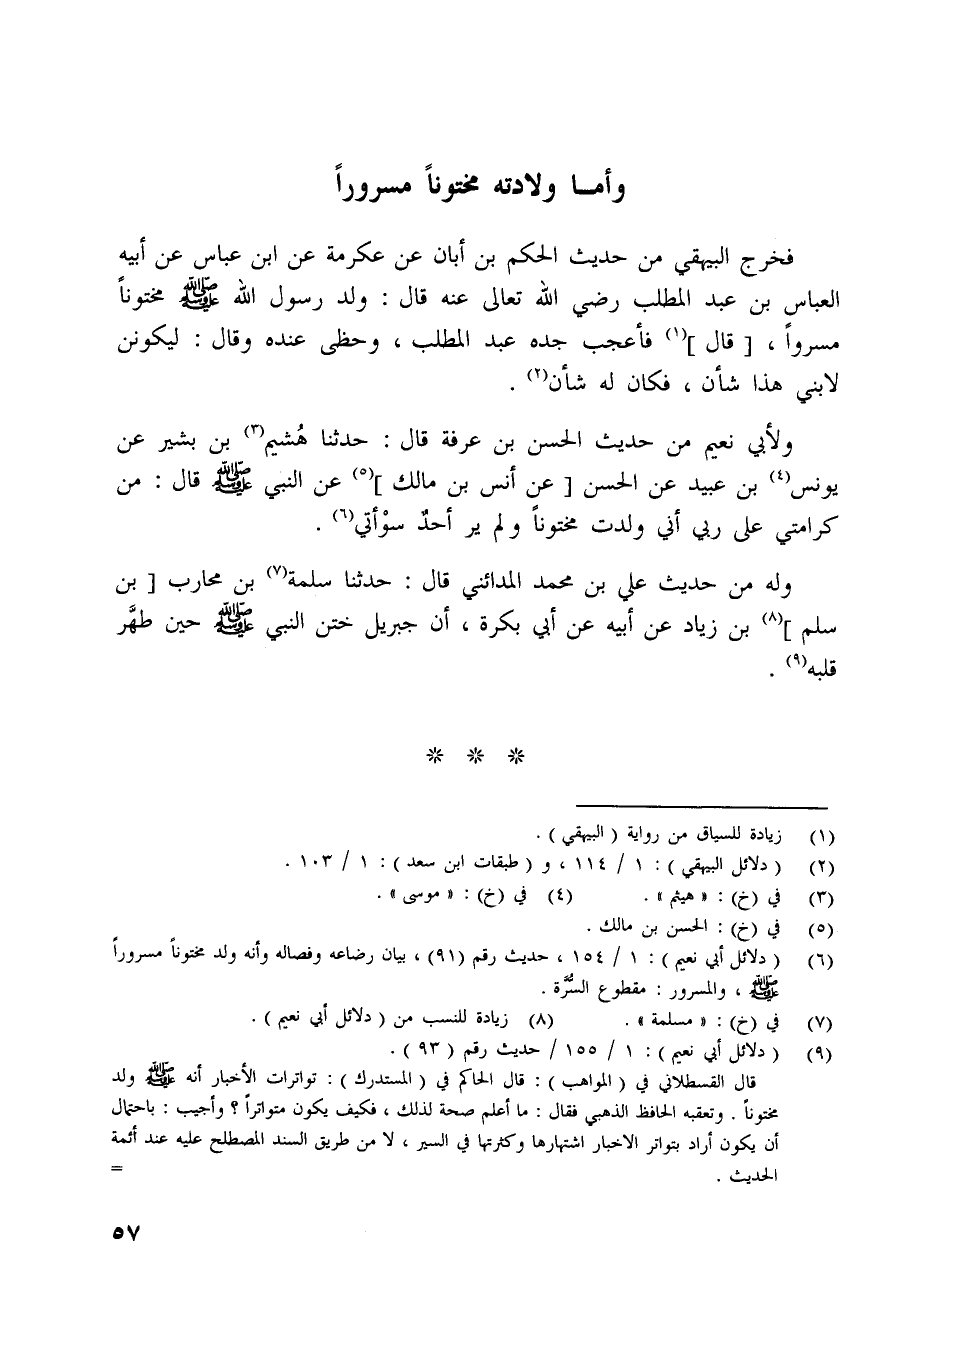 وأمــا ولادته مختوناً مسروراً
فخرج البيهقي من حديث الحكم بن أبان عن عكرمة عن ابن عباس عن أبيه
العباس بن عبد المطلب رضي الله تعالى عنه قال : ولد رسول الله ﷺ مختوناً
مسرواً ، [ قال ](١) فأعجب جده عبد المطلب ، وحظى عنده وقال : ليكونن
لابني هذا شأن ، فكان له شأن(٢) .
ولأبي نعيم من حديث الحسن بن عرفة قال : حدثنا هُشيم(٣) بن بشير عن
يونس(٤) بن عبيد عن الحسن [ عن أنس بن مالك ](٥) عن النبي ﷺ قال : من
كرامتي على ربي أني ولدت مختوناً ولم ير أحدٌ سوْأتي(٦) .
وله من حديث علي بن محمد المدائني قال : حدثنا سلمة(٧) بن محارب [ بن
سلم ](٨) بن زياد عن أبيه عن أبي بكرة ، أن جبريل ختن النبي ﷺ حين طهَّر
قلبه(٩) .
* * *
(١) زيادة للسياق من رواية ( البيهقي ) .
(٢) ( دلائل البيهقي ) : ١ / ١١٤ ، و ( طبقات ابن سعد ) : ١ / ١٠٣ .
(٣) في (خ) : « هيثم » . (٤) في (خ) : « موسى » .
(٥) في (خ) : الحسن بن مالك .
(٦) ( دلائل أبي نعيم ) : ١ / ١٥٤ ، حديث رقم (٩١) ، بيان رضاعه وفصاله وأنه ولد مختوناً مسروراً
ﷺ ، والمسرور : مقطوع السُّرَّة .
(٧) في (خ) : « مسلمة » . (٨) زيادة للنسب من ( دلائل أبي نعيم ) .
(٩) ( دلائل أبي نعيم ) : ١ / ١٥٥ / حديث رقم ( ٩٣ ) .
قال القسطلاني في ( المواهب ) : قال الحاكم في ( المستدرك ) : تواترات الأخبار أنه ﷺ ولد
مختوناً . وتعقبه الحافظ الذهبي فقال : ما أعلم صحة لذلك ، فكيف يكون متواتراً ؟ وأجيب : باحتمال
أن يكون أراد بتواتر الاخبار اشتهارها وكثرتها في السير ، لا من طريق السند المصطلح عليه عند أئمة
الحديث . =
٥٧